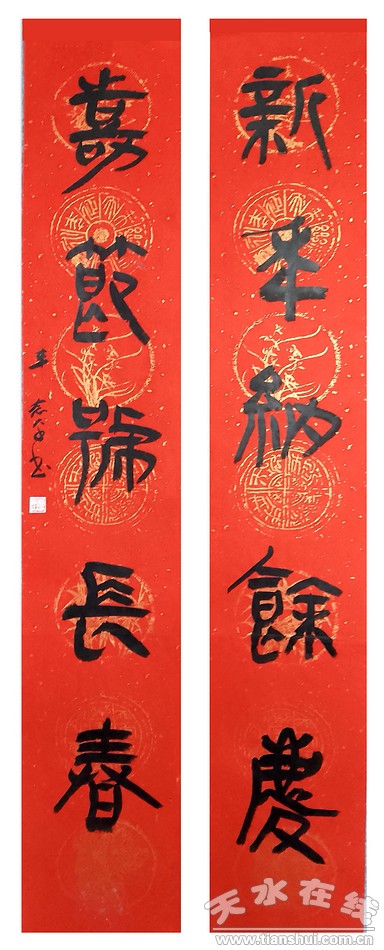 新年納餘慶
嘉節號長春
天水在线
www.tianshui.com.cn